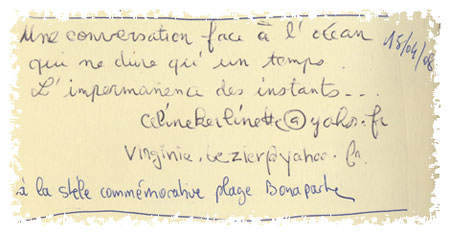 Une conversation face à l'océan
qui ne dure qu'un temps.
L'impermanence des instants...
18/04/08
celinekerlinette@yahoo.fr
virginie.lezier@yahoo.fr.
à la stèle commémorative plage Bonaparte